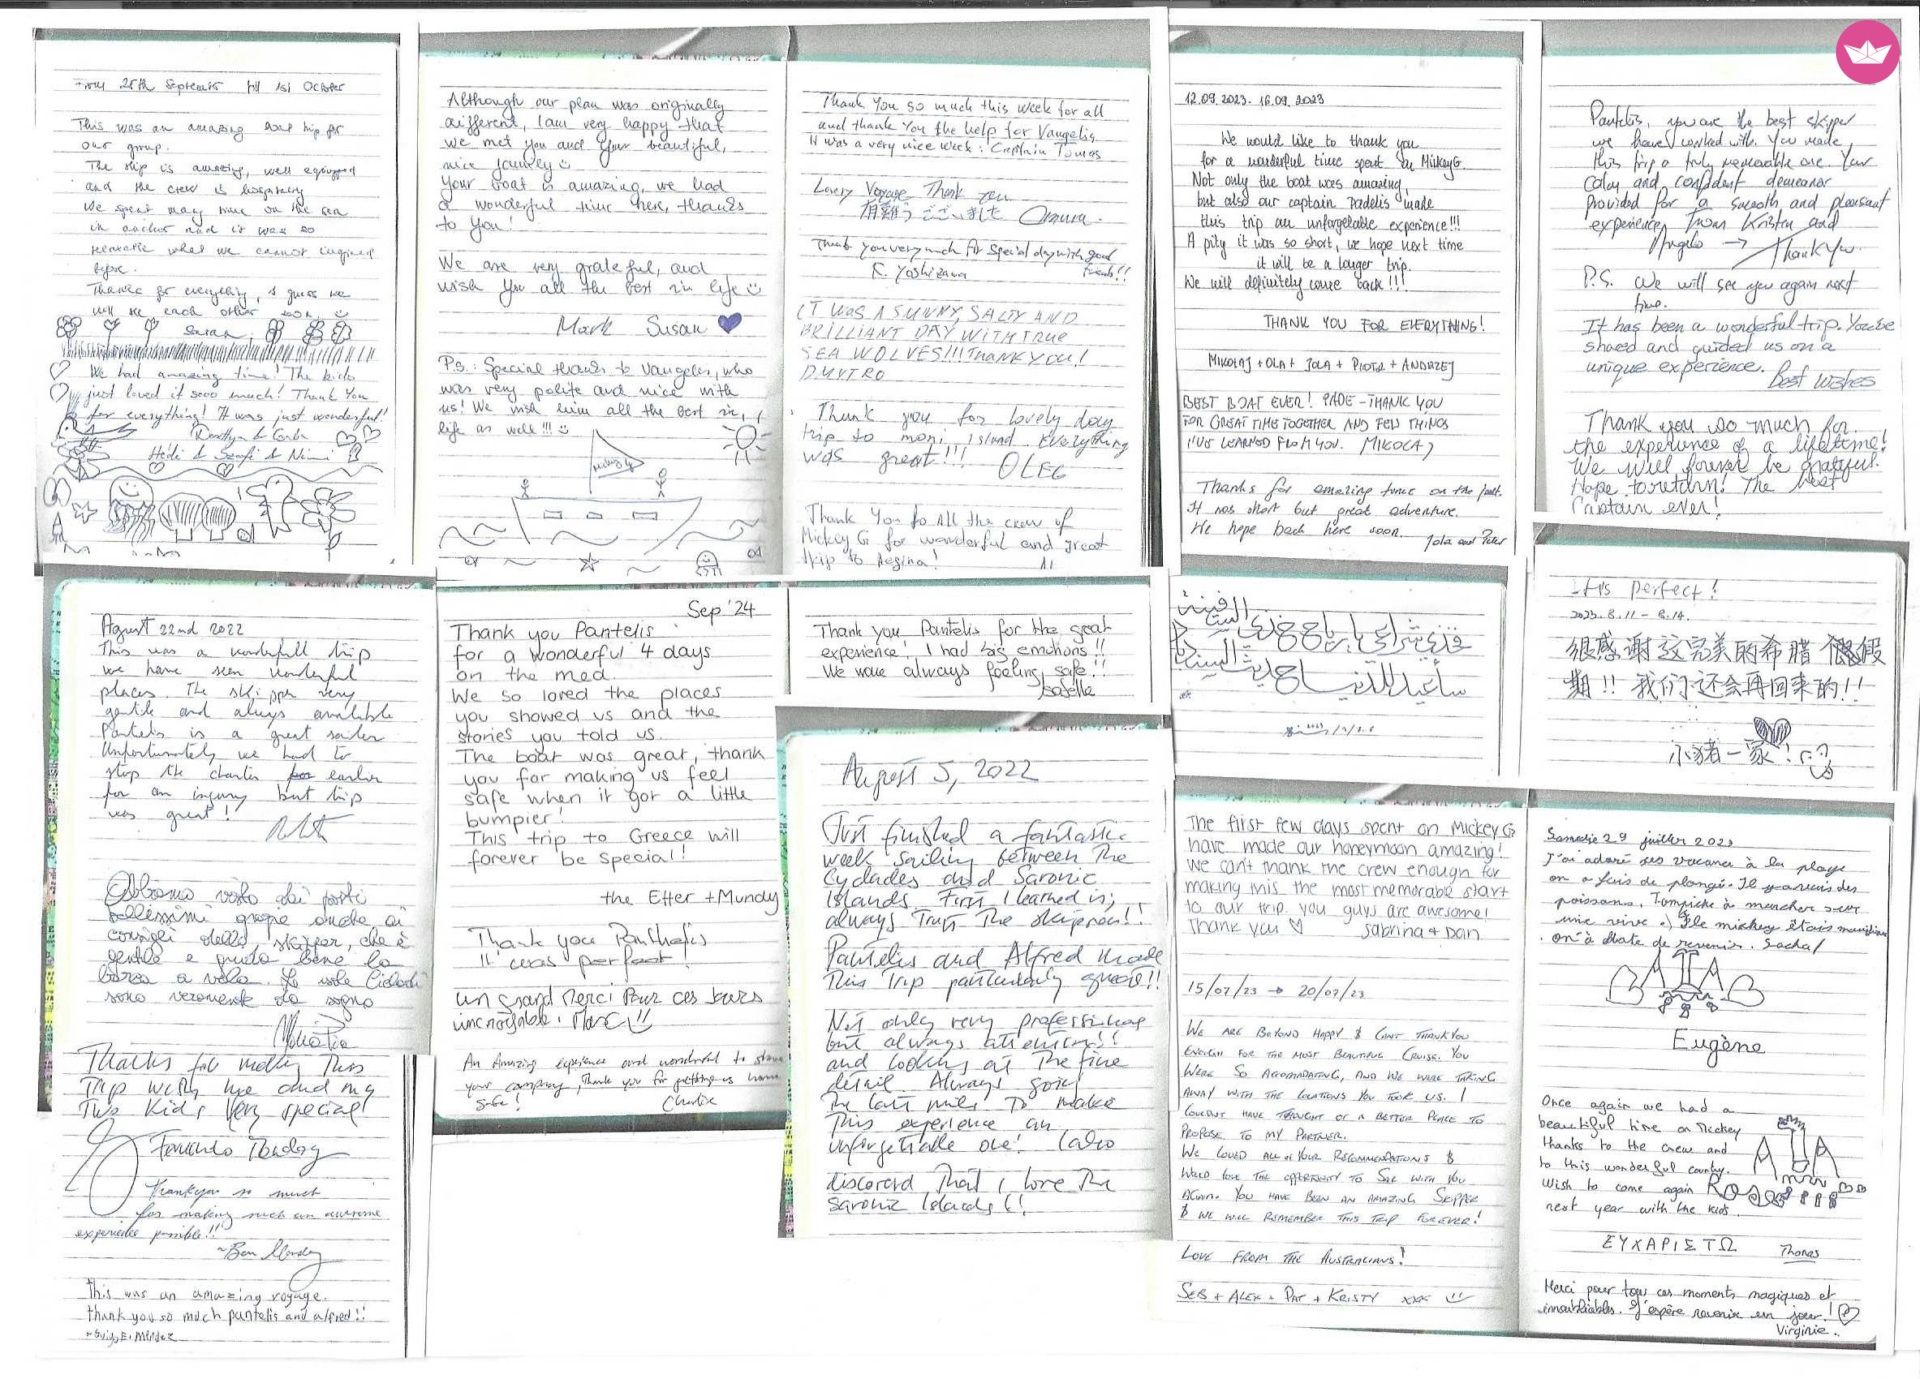 From 25th September till 1st October
This was an amazing boat trip for
our group.
The ship is amazing, well equipped
and the crew is
We spent many time on the sea
in anchor and it was so
what we cannot
before.
Thanks for everything, I guess we
will see each other soon.
We had amazing time! The kids
just loved it sooo much! Thank You
for everything! It was just wonderful!
Although our plan was originally
different, I am very happy that
we met you and your beautiful,
nice journey ☺
Your boat is amazing, we had
a wonderful time here, thanks
to You!
We are very grateful, and
wish You all the best in life ☺
Mark Susan
Ps.: Special thanks to Vangelis, who
was very polite and nice with
us! We wish him all the best in
life as well!!! ☺
Thank You so much this week for all
and thank You the help for Vangelis
It was a very nice week: Captain Tomas
Lovely Voyage Thank you
有難うございました
Thank you very much for special day with good
friends!!
K. Yoshizawa
IT WAS A SUNNY, SALTY AND
BRILLIANT DAY WITH TRUE
SEA WOLVES!!! THANK YOU!
DMYTRO
Thank you for lovely day
trip to moni island. Everything
was great!!! OLEG
Thank You to All the crew of
Mickey G for wonderful and great
trip to Aegina!
12.09.2023 - 16.09.2023
We would like to thank you
for a wonderful time spent on MickeyG.
Not only the boat was amazing,
but also our captain Padelis made
this trip an unforgettable experience!!!
A pity it was so short, we hope next time
it will be a longer trip.
We will definitely come back!!!
THANK YOU FOR EVERYTHING!
MIKOŁAJ + OLA + JOLA + PIOTR + ANDRZEJ
BEST BOAT EVER! PADE - THANK YOU
FOR GREAT TIME TOGETHER AND FEW THINGS
I'VE LEARNED FROM YOU. MIKOŁAJ
Thanks for amazing time on the boat.
It was short but great adventure.
We hope back here soon.
Jola and Peter
Pantelis, you are the best skipper
we have worked with. You made
this trip a truly memorable one. Your
calm and confident demeanor
provided for a smooth and pleasant
experience, from Kristin and
Angelo → Thank You.
P.S. We will see you again next
time.
It has been a wonderful trip. You've
shared and guided us on a
unique experience. Best wishes
Thank you so much for
the experience of a lifetime!
We will forever be grateful.
Hope to return! The best
Captain ever!
August 22nd 2022
This was a wonderfull trip
we have seen wonderful
places. The skipper very
gentle and always available
Pantelis is a great sailor
Unfortunately we had to
stop the charter earlier
for an injury but trip
was great!
Abbiamo visto dei posti
bellissimi grazie anche ai
consigli dello skipper, che è
gentile e guida bene la
barca a vela. Le isole Cicladi
sono veramente da sogno
Thanks for making this
Trip with me and my
Two Kids Very special
Thankyou so much
for making such an awesome
experience possible!!
This was an amazing voyage.
thank you so much pantelis and alfred!!
Sep '24
Thank you Pantelis
for a wonderful 4 days
on the med.
We so loved the places
you showed us and the
stories you told us.
The boat was great, thank
you for making us feel
safe when it got a little
bumpier!
This trip to Greece will
forever be special!
the Etter + Mundy
Thank you Panthelis
It was perfect!
Un Grand Merci Pour ces Jours
incroyable.
An Amazing experience and wonderful to share
your company, Thank you for getting us home
safe!
Charlie
Thank you Pantelis for the great
experience! I had big emotions!!
We wave always feeling safe!!
Isabelle
August 5, 2022
Just finished a fantastic
week sailing between the
Cyclades and Saronic
Islands. First I learned is,
always Trust The skippers!!
Pantelis and Alfred made
This Trip particularly great!!
Not only very professional
but always attentive!!
and looking at The fine
detail. Always going
The last miles To make
This experience an
unforgettable one! I also
discovered That I love The
Saronic Islands!!
It's perfect!
2023.8.11 - 8.14.
很感谢这完美的希腊假
期!! 我们还会再回来的!!
小猪一家!
The first few days spent on MickeyG
have made our honeymoon amazing!
We can't thank the crew enough for
making this the most memorable start
to our trip. you guys are awesome!
Thank you ♡ Sabrina + Dan
15/07/23 → 20/07/23
WE ARE BEYOND HAPPY & CANT THANK YOU
ENOUGH FOR THE MOST BEAUTIFUL CRUISE. YOU
WERE SO ACCOMADATING, AND WE WERE TAKING
AWAY WITH THE LOCATIONS YOU TOOK US. I
COULDNT HAVE THOUGHT OF A BETTER PLACE TO
PROPOSE TO MY PARTNER.
WE LOVED ALL OF YOUR RECOMMENDATIONS &
WOULD LOVE THE OPPORTUNITY TO SAIL WITH YOU
AGAIN. YOU HAVE BEEN AN AMAZING SKIPPER
& WE WILL REMEMBER THIS TRIP FOREVER!
LOVE FROM THE AUSTRALIANS!
SEB + ALEX + PAT + KRISTY xxx ☺
Samedie 29 juillet 2023
J'ai adoré ses vacance à la plage
on a fais de plongé. Il y avais des
poissons,
on à hate de revenir. Sacha!
Eugène
Once again we had a
beautiful time on Mickey
thanks to the crew and
to this wonderful country.
Wish to come again
next year with the kids.
Rose
ΕΥΧΑΡΙΣΤΩ Thomas
Merci pour tous ces moments magiques et
inoubliables. J'espère revenir un jour! ♡
Virginie..